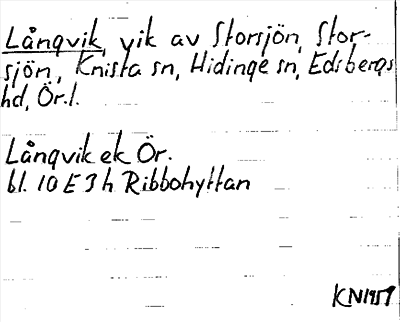 Långvik, vik av Storsjön, Stor-
sjön, Knista sn, Hidinge sn, Edsbergs
hd, Ör.l.
Långvik ek Ör.
bl. 10 E 3 h Ribbohyttan
KN1959